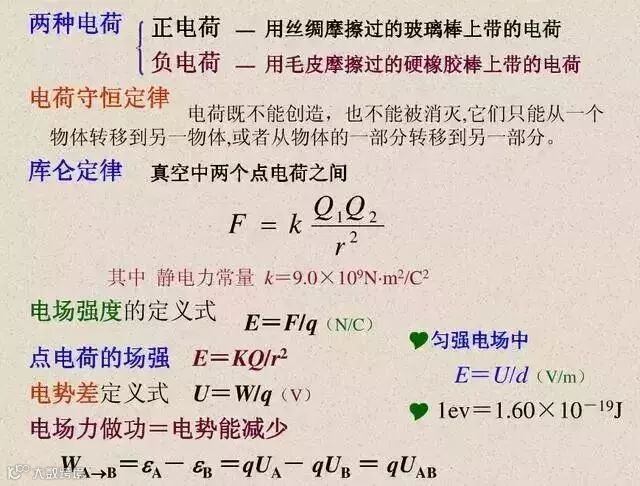 两种电荷
正电荷 — 用丝绸摩擦过的玻璃棒上带的电荷
负电荷 — 用毛皮摩擦过的硬橡胶棒上带的电荷
电荷守恒定律
电荷既不能创造，也不能被消灭,它们只能从一个
物体转移到另一物体,或者从物体的一部分转移到另一部分。
库仑定律 真空中两个点电荷之间
F = k Q₁Q₂ / r²
其中 静电力常量 k＝9.0×10⁹N·m²/C²
电场强度的定义式 E＝F/q (N/C)
点电荷的场强 E＝KQ/r²
电势差定义式 U＝W/q (V)
电场力做功＝电势能减少
W_A→B＝ε_A－ ε_B＝qU_A－ qU_B = qU_AB
匀强电场中
E＝U/d (V/m)
1ev＝1.60×10⁻¹⁹J
大数跨境